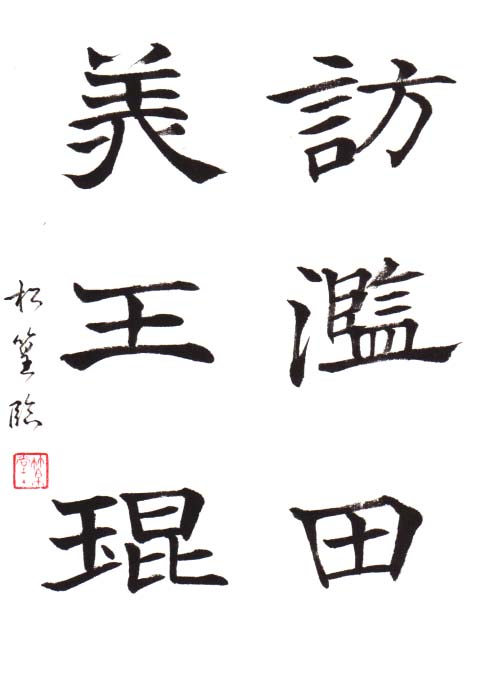 訪濫田
美王琨
松篁臨